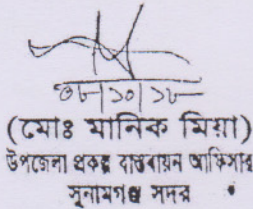 ০৮/১০/১৮
(মোঃ মানিক মিয়া)
উপজেলা প্রকল্প বাস্তবায়ন অফিসার
সুনামগঞ্জ সদর